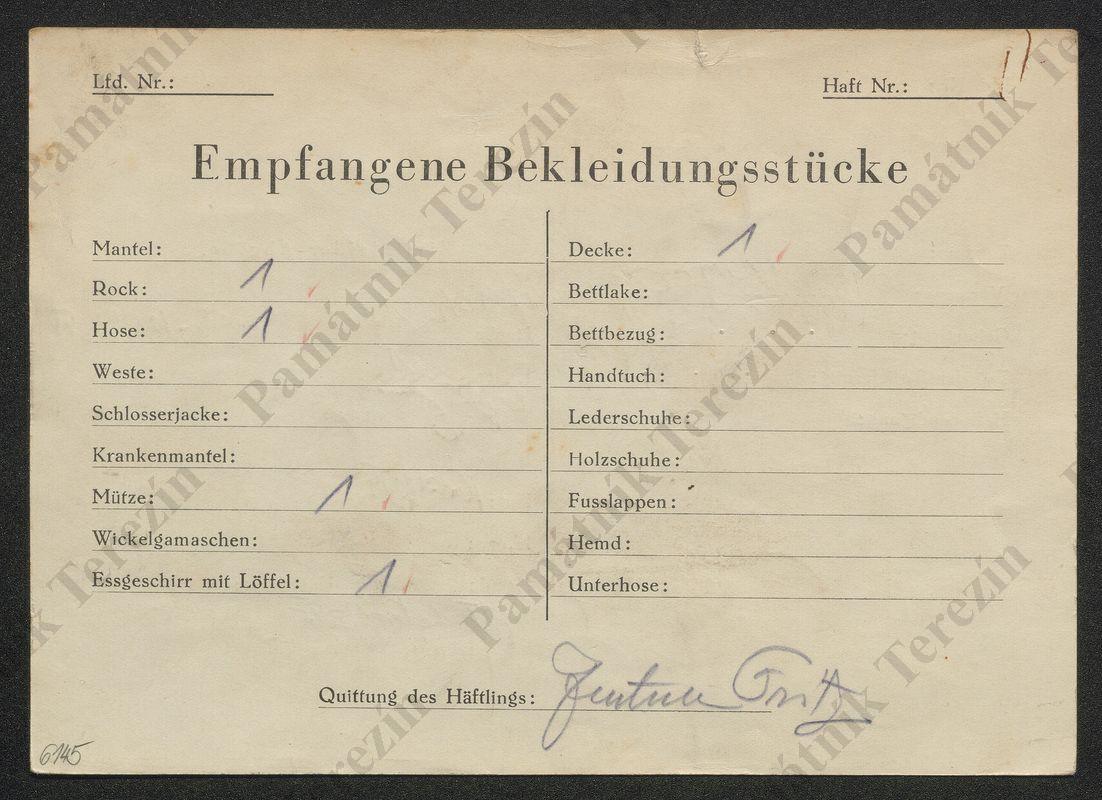 Lfd. Nr.:
Haft Nr.:
Empfangene Bekleidungsstücke
Mantel:
Rock: 1
Hose: 1
Weste:
Schlosserjacke:
Krankenmantel:
Mütze: 1
Wickelgamaschen:
Essgeschirr mit Löffel: 1
Decke: 1
Bettlake:
Bettbezug:
Handtuch:
Lederschuhe:
Holzschuhe:
Fusslappen:
Hemd:
Unterhose:
Quittung des Häftlings: Fritz
6145
Památník Terezín